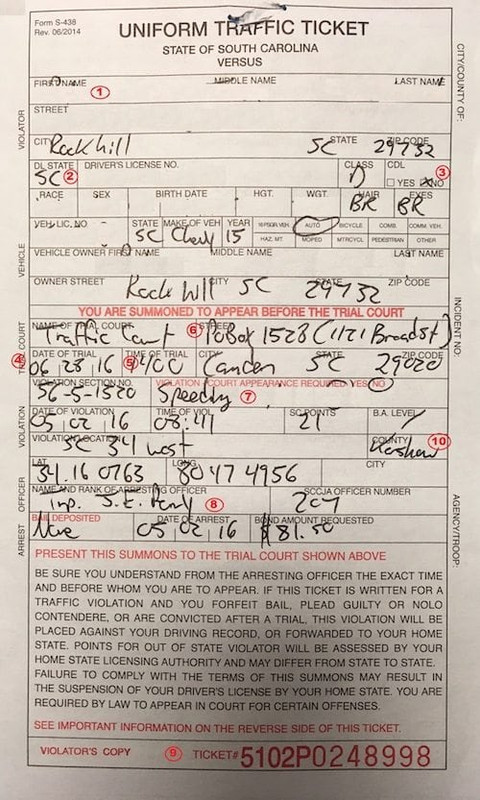 Form S-438
Rev. 06/2014
UNIFORM TRAFFIC TICKET
STATE OF SOUTH CAROLINA
VERSUS
CITY/COUNTY OF:
VIOLATOR
FIRST NAME MIDDLE NAME LAST NAME
1
STREET
CITY STATE ZIP CODE
Rock hill SC 29732
DL STATE DRIVER'S LICENSE NO. CLASS CDL
SC 2 D 3 YES NO
RACE SEX BIRTH DATE HGT. WGT. HAIR EYES
BR BR
VEHICLE
VEH. LIC. NO STATE MAKE OF VEH YEAR 16 PSGR VEH. AUTO BICYCLE COMB. COMM. VEH.
SC Chevy 15 HAZ. MT. MOPED MTRCYCL PEDESTRIAN OTHER
VEHICLE OWNER FIRST NAME MIDDLE NAME LAST NAME
OWNER STREET CITY STATE ZIP CODE
Rock Hill SC 29732
YOU ARE SUMMONED TO APPEAR BEFORE THE TRIAL COURT
INCIDENT NO:
TRIAL COURT
NAME OF TRIAL COURT 6 STREET
Traffic Court PO Box 1528 (1121 Broad st)
4 DATE OF TRIAL 5 TIME OF TRIAL CITY STATE ZIP CODE
06 28 16 1400 Camden SC 29020
VIOLATION
VIOLATION SECTION NO. VIOLATION COURT APPEARANCE REQUIRED YES NO
56-5-1520 Speeding 7
DATE OF VIOLATION TIME OF VIOL. SC POINTS B.A. LEVEL
05 02 16 08:41
VIOLATION LOCATION COUNTY 10
SC 34 west Kershaw
LAT LONG CITY
34.16 0763 80 47 4956
ARREST OFFICER
NAME AND RANK OF ARRESTING OFFICER SCCJA OFFICER NUMBER
8
BAIL DEPOSITED DATE OF ARREST BOND AMOUNT REQUESTED
05 02 16 $81.50
AGENCY/TROOP:
PRESENT THIS SUMMONS TO THE TRIAL COURT SHOWN ABOVE
BE SURE YOU UNDERSTAND FROM THE ARRESTING OFFICER THE EXACT TIME
AND BEFORE WHOM YOU ARE TO APPEAR. IF THIS TICKET IS WRITTEN FOR A
TRAFFIC VIOLATION AND YOU FORFEIT BAIL, PLEAD GUILTY OR NOLO
CONTENDERE, OR ARE CONVICTED AFTER A TRIAL, THIS VIOLATION WILL BE
PLACED AGAINST YOUR DRIVING RECORD, OR FORWARDED TO YOUR HOME
STATE. POINTS FOR OUT OF STATE VIOLATOR WILL BE ASSESSED BY YOUR
HOME STATE LICENSING AUTHORITY AND MAY DIFFER FROM STATE TO STATE.
FAILURE TO COMPLY WITH THE TERMS OF THIS SUMMONS MAY RESULT IN
THE SUSPENSION OF YOUR DRIVER'S LICENSE BY YOUR HOME STATE. YOU ARE
REQUIRED BY LAW TO APPEAR IN COURT FOR CERTAIN OFFENSES.
SEE IMPORTANT INFORMATION ON THE REVERSE SIDE OF THIS TICKET.
VIOLATOR'S COPY 9 TICKET# 5102P0248998